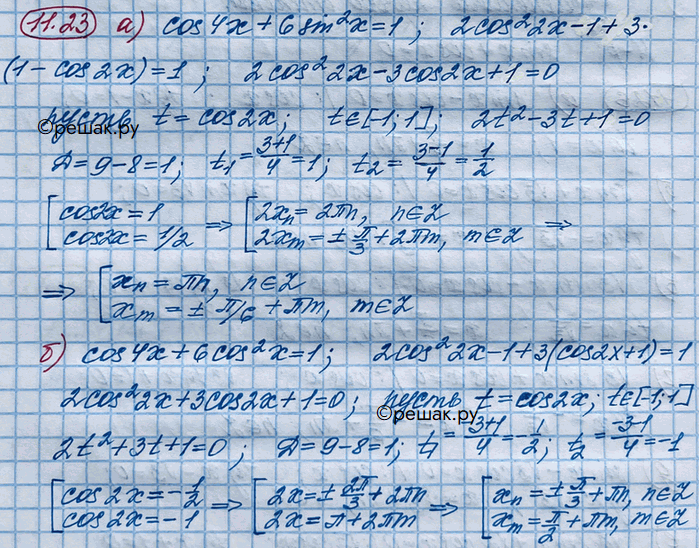 11.23 а) cos4x + 6sin²x = 1; 2cos²2x - 1 + 3·
(1 - cos2x) = 1; 2cos²2x - 3cos2x + 1 = 0
пусть t = cos2x; t∈[-1;1]; 2t² - 3t + 1 = 0
©решак.ру
Д = 9 - 8 = 1; t₁ = (3+1)/4 = 1; t₂ = (3-1)/4 = 1/2
[cos2x = 1 ⇒ [2xₙ = 2πn, n∈Z
cos2x = 1/2 2xₘ = ± π/3 + 2πm, m∈Z ⇒
⇒ [xₙ = πn, n∈Z
xₘ = ± π/6 + πm, m∈Z
б) cos4x + 6cos²x = 1; 2cos²2x - 1 + 3(cos2x + 1) = 1
2cos²2x + 3cos2x + 1 = 0; пусть t = cos2x; t∈[-1;1]
©решак.ру
2t² + 3t + 1 = 0; Д = 9 - 8 = 1; t₁ = (-3+1)/4 = -1/2; t₂ = (-3-1)/4 = -1
[cos2x = -1/2 ⇒ [2x = ± 2π/3 + 2πn ⇒ [xₙ = ± π/3 + πn, n∈Z
cos2x = -1 2x = π + 2πm xₘ = π/2 + πm, m∈Z